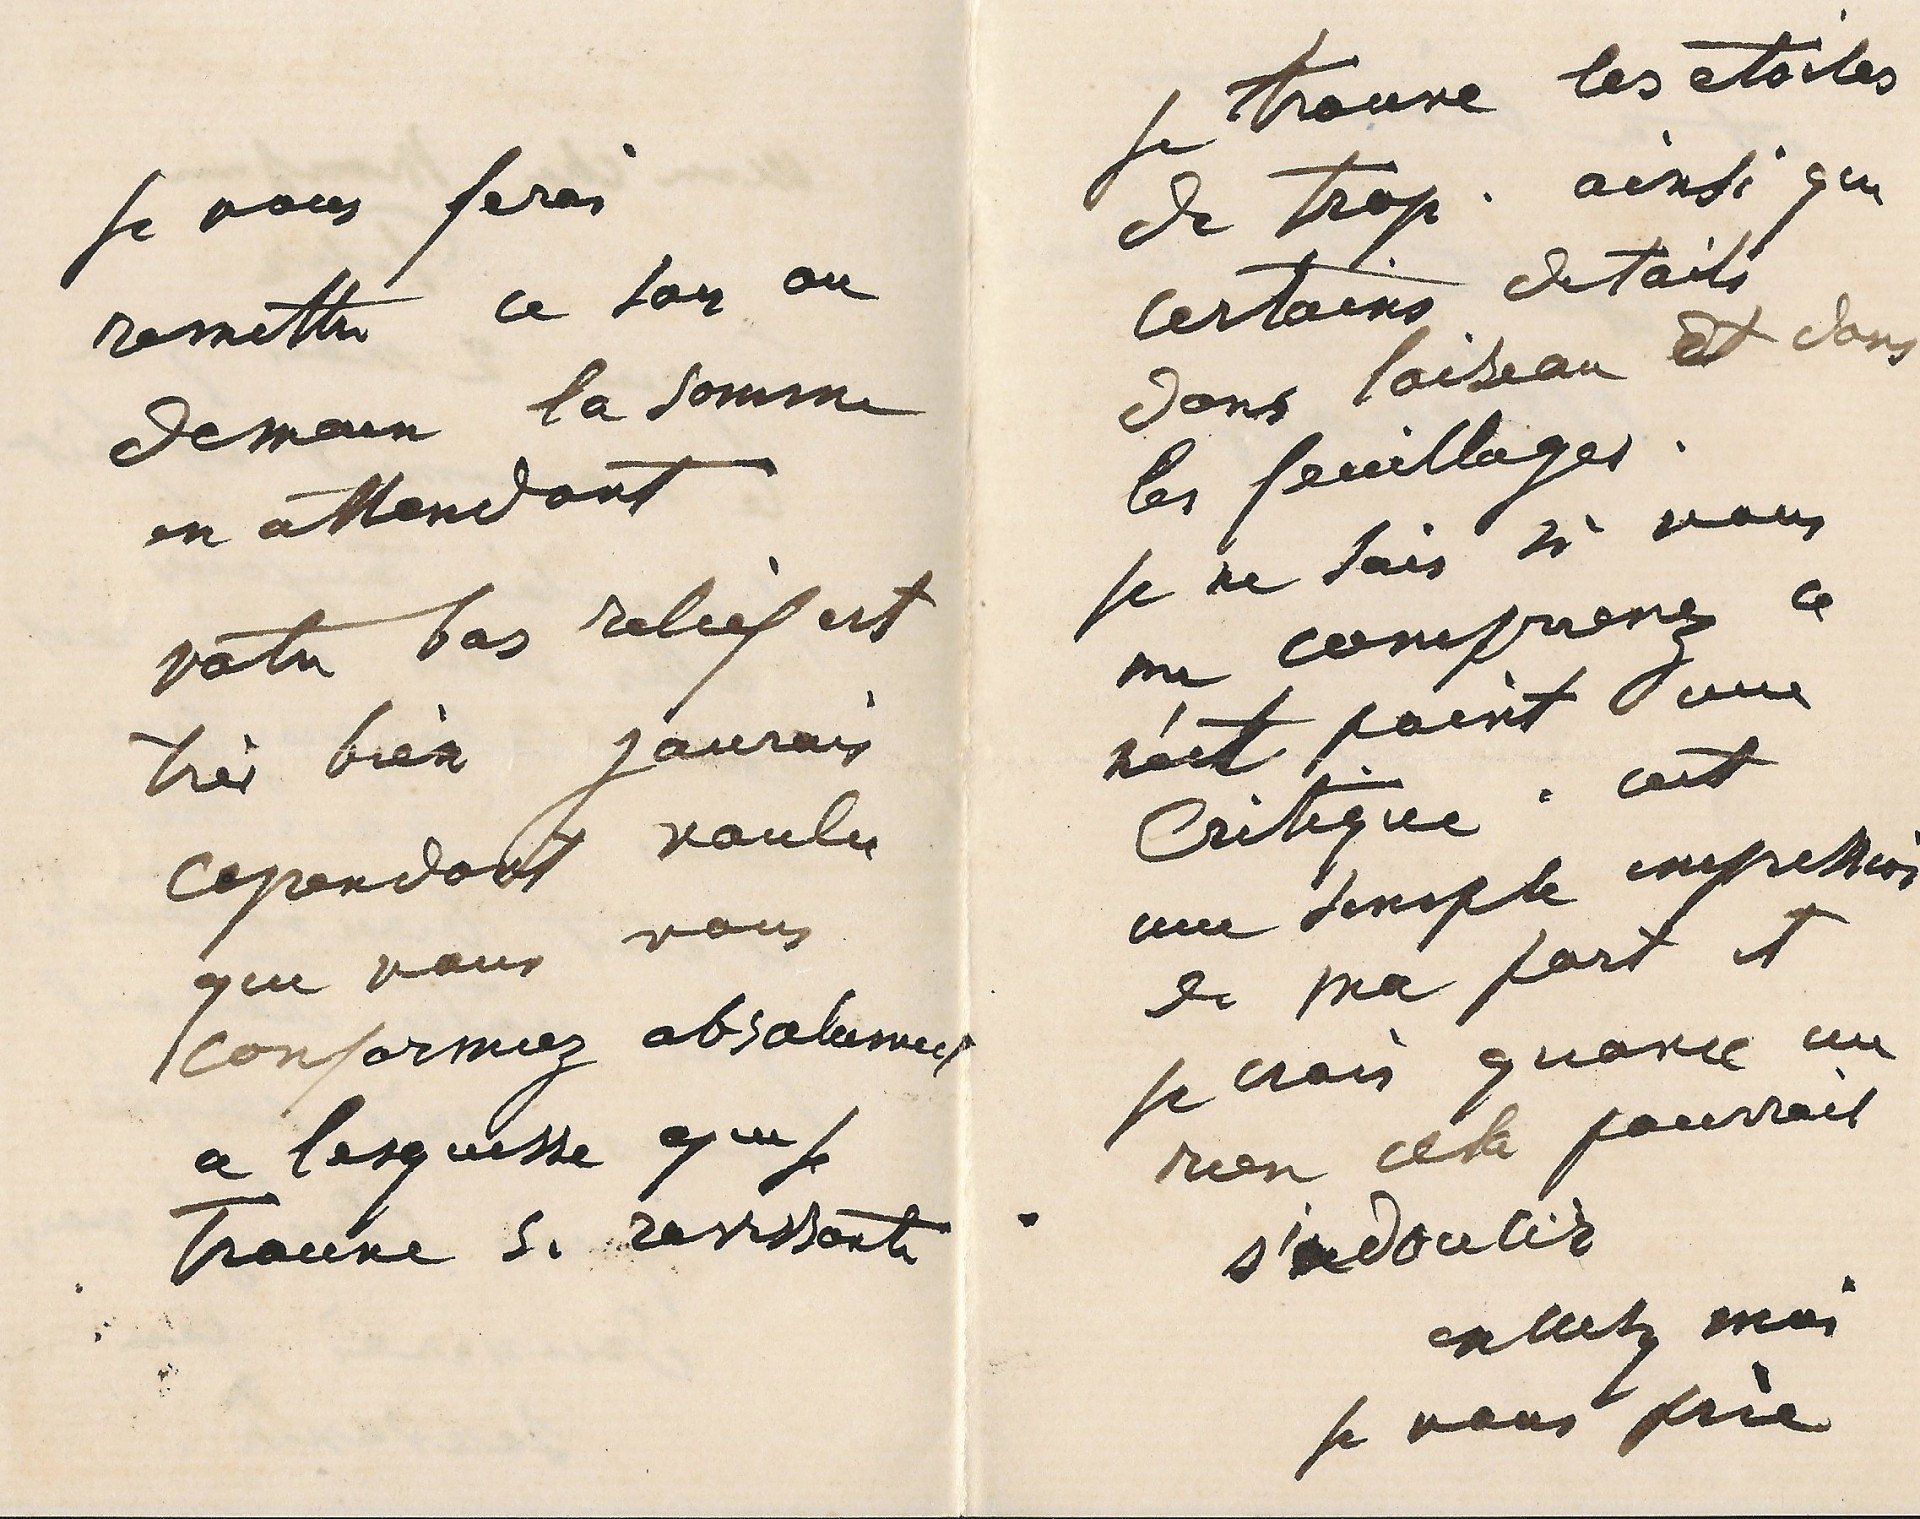 je vous ferai
remettre ce soir ou
demain la somme
en attendant
votre bas relief est
très bien jaurais
cependant voulu
que vous vous
conformiez absolument
a lesquisse que je
trouve si ravissante
je trouve les etoiles
de trop. ainsi que
certains details
dans loiseau et dans
les feuillages.
je ne sais si vous
me comprenez ce
n'est point une
Critique. cest
une simple impression
de ma part et
je crois quavec un
rien cela pourrait
s'adoucir
moi
je vous prie